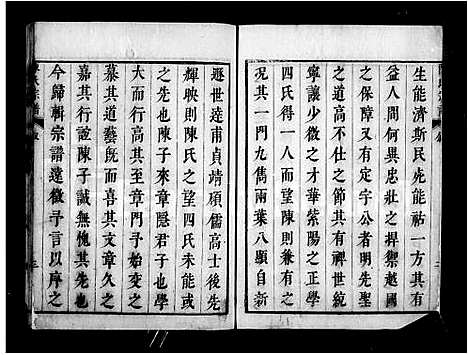 生能濟斯民死能祐一方其有
益人間何異忠壯之捍禦越國
之保障又有定宇公者明先聖
之道高不仕之節其有裨世統
寧讓少微之才華紫陽之正學
四氏得一人而望陳則兼有之
況其一門九雋兩葉八顯自新
遯世達甫貞靖碩儒高士後先
輝映則陳氏之望四氏未能或
之先也陳子來章隱君子也學
大而行高其至章門予始變之
慕其道藝既而喜其文章久之
嘉其行誼陳子誠無愧其先也
今歸輯宗譜遠徵予言以序之
氏宗譜